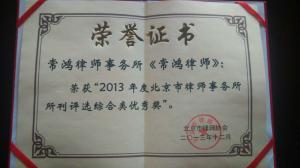 荣誉证书
常鸿律师事务所《常鸿律师》:
荣获“2013年度北京市律师事务所
所刊评选综合类优秀奖”。
北京市律师协会
二〇一三年十二月